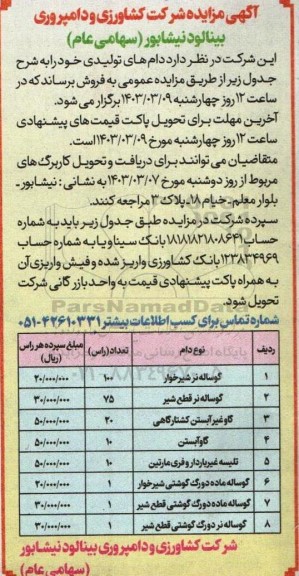 آگهی مزایده شرکت کشاورزی و دامپروری
بینالود نیشابور (سهامی عام)
این شرکت در نظر دارد دام های تولیدی خود را به شرح
جدول زیر از طریق مزایده عمومی به فروش برساند که در
ساعت ۱۲ روز چهارشنبه ۱۴۰۳/۰۳/۰۹ برگزار می شود.
آخرین مهلت برای تحویل پاکت قیمت های پیشنهادی
ساعت ۱۲ روز چهارشنبه مورخ ۱۴۰۳/۰۳/۰۹ است.
متقاضیان می توانند برای دریافت و تحویل کاربرگ های
مربوط از روز دوشنبه مورخ ۱۴۰۳/۰۳/۰۷ به نشانی : نیشابور -
بلوار معلم - خیام ۱۸ - پلاک ۳ مراجعه کنند.
سپرده شرکت در مزایده طبق جدول زیر باید به شماره
حساب ۱۸۱۸۱۸۲۱۸۰۸۶۴۱ بانک سینا و یا به شماره حساب
۱۲۳۸۳۴۹۶۹ بانک کشاورزی واریز شده و فیش واریزی آن
به همراه پاکت پیشنهادی قیمت به واحد بازرگانی شرکت
تحویل شود.
شماره تماس برای کسب اطلاعات بیشتر ۴۲۶۱۰۳۳۱-۰۵۱
ردیف نوع دام تعداد (راس) مبلغ سپرده هر راس (ریال)
۱ گوساله نر شیرخوار ۱۰۰ ۲۰/۰۰۰/۰۰۰
۲ گوساله نر قطع شیر ۷۵ ۳۰/۰۰۰/۰۰۰
۳ گاو غیر آبستن کشتارگاهی ۲۰ ۵۰/۰۰۰/۰۰۰
۴ گاو آبستن ۱۰ ۵۰/۰۰۰/۰۰۰
۵ تلیسه غیرباردار و فری مارتین ۱۰ ۵۰/۰۰۰/۰۰۰
۶ گوساله ماده دورگ گوشتی شیرخوار ۱ ۲۰/۰۰۰/۰۰۰
۷ گوساله ماده دورگ گوشتی قطع شیر ۱ ۳۰/۰۰۰/۰۰۰
۸ گوساله نر دورگ گوشتی قطع شیر ۱ ۳۰/۰۰۰/۰۰۰
شرکت کشاورزی و دامپروری بینالود نیشابور
(سهامی عام)